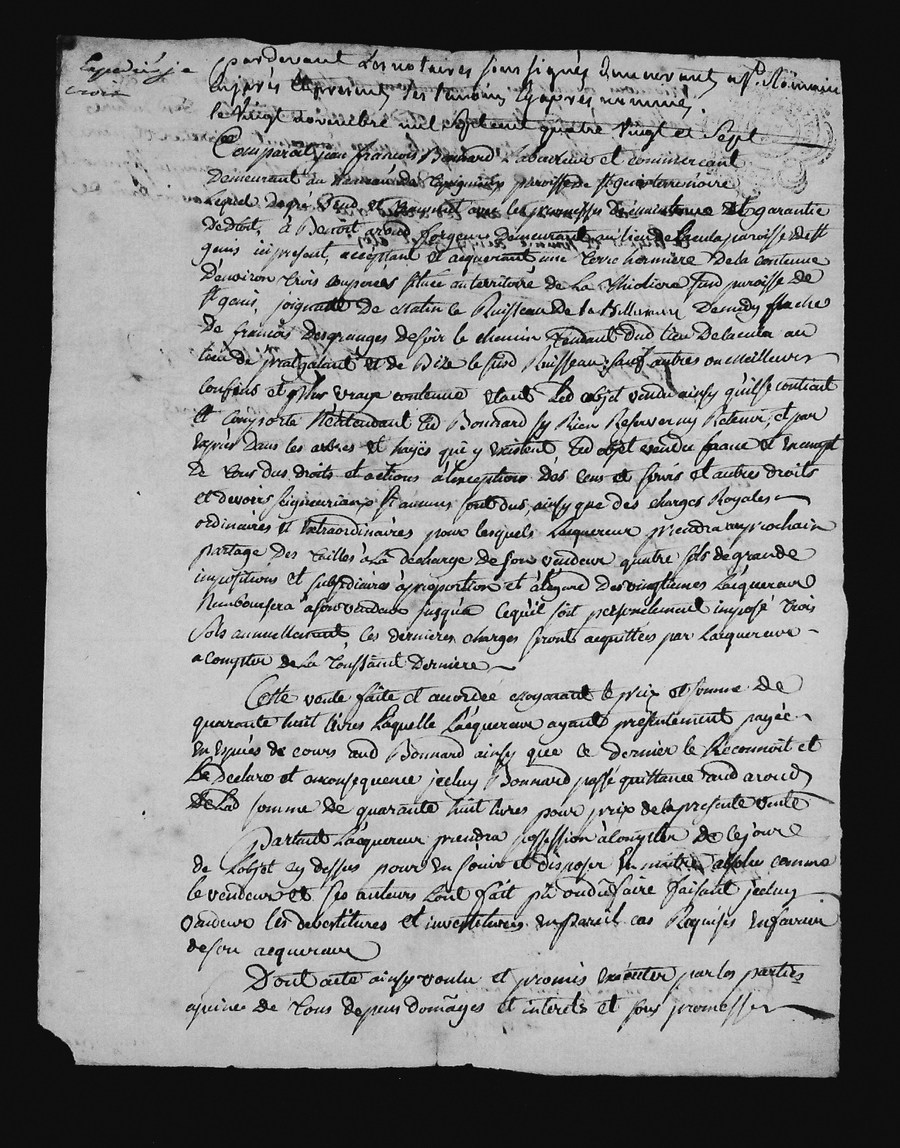 Expedié je
crois
pardevant Les notaires soussignés demeurant a St Romain
En jarés Et presents les temoins cy apres nommés.
le vingt novembre mil sept cent quatre vingt et sept
Comparait jean françois Bonnard Laboureur et commerçant
Demeurant au hameau de paroisse de St
Lequel De gré vend et Remet avec les promesses de maintenue Et garantie
De droit, à Benoit arond forgeur Demeurant au lieu de Lacula paroisse de St
genis ici present, acceptant et acquerant une Terre hermiere De la contenue
D'environ trois couporées située au territoire de La Thioliere susd paroisse de
St genis, joignant De matin le Ruisseau de la De midy
De françois Desgranges De soir le chemin Tendant Dud lieu De lacula au
lieu de et de Bize le susd Ruisseau sauf autres ou meilleurs
confins et plus vraye contenue Etant Led objet vendu ainsy qu'il se contient
Et comporte N'entendant Led Bonnard sy Rien Reserver ny Retenir, et par
Exprés Dans les arbres et hayes qui y Existent, Led objet vendu franc et Exempt
De tous dus droits et actions à l'exception Des cens et servis et autres droits
et devoirs seigneuriaux sy aucuns sont dus, ainsy que des charges Royales
ordinaires et Extraordinaires pour lesquels Lacquereur prendra au prochain
partage Des tailles à La decharge de son vendeur quatre sols de grande
impositions et subsidiaires à proportion et à l'egard Des vingtiemes Lacquereur
Remboursera à son vendeur jusqu'a Ce qu'il soit personnelement imposé Trois
sols annuellement Ces dernieres charges seront acquittées par Lacquereur
a compter de La Toussaint Derniere
Cette vente faite et accordée moyenant le prix et somme De
quarante huit livres Laquelle Lacquereur ayant presentement payée
En Espéces de cours aud Bonnard ainsy que ce dernier le Reconnoit et
Le Declare et en consequence jceluy Bonnard passe quittance aud arond
De Lad somme de quarante huit livres pour prix de la presente vente
Partant Lacquereur prendra possession à compter De ce jour
de L'objet cy dessus pour En jouir et disposer En maitre absolu comme
le vendeur et ses auteurs l'ont fait pu ou du faire faisant jceluy
vendeur les devestitures et investitures en pareil cas Requises En faveur
de son acquereur
Dont acte ainsy voulu et promis Executer par les parties
a peine de Tous depens domages et interets et sous promesses